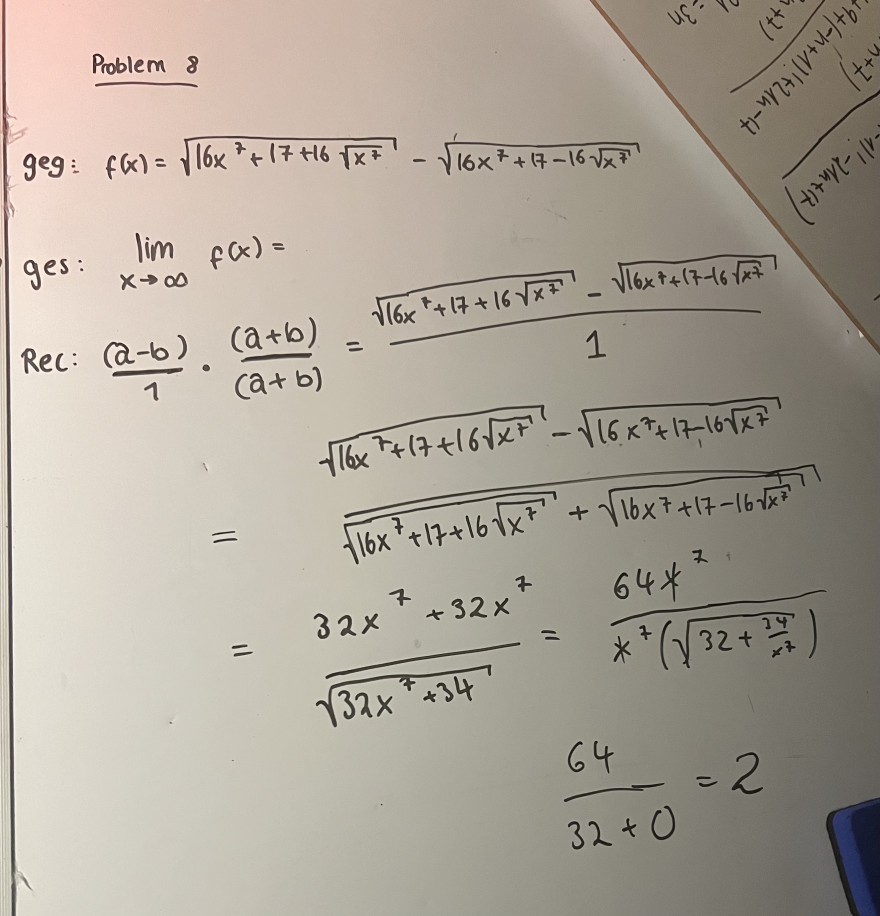 Problem 8
geg: f(x) = √(16x⁷+17+16√(x⁷)) - √(16x⁷+17-16√(x⁷))
ges: lim x→∞ f(x) =
Rec: (a-b)/1 · (a+b)/(a+b) = (√(16x⁷+17+16√(x⁷)) - √(16x⁷+17-16√(x⁷)))/1
= (√(16x⁷+17+16√(x⁷)) - √(16x⁷+17-16√(x⁷)))/(√(16x⁷+17+16√(x⁷)) + √(16x⁷+17-16√(x⁷)))
= (32x⁷+32x⁷)/√(32x⁷+34) = 64x⁷/(x⁷(√(32+34/x⁷)))
64/(32+0) = 2